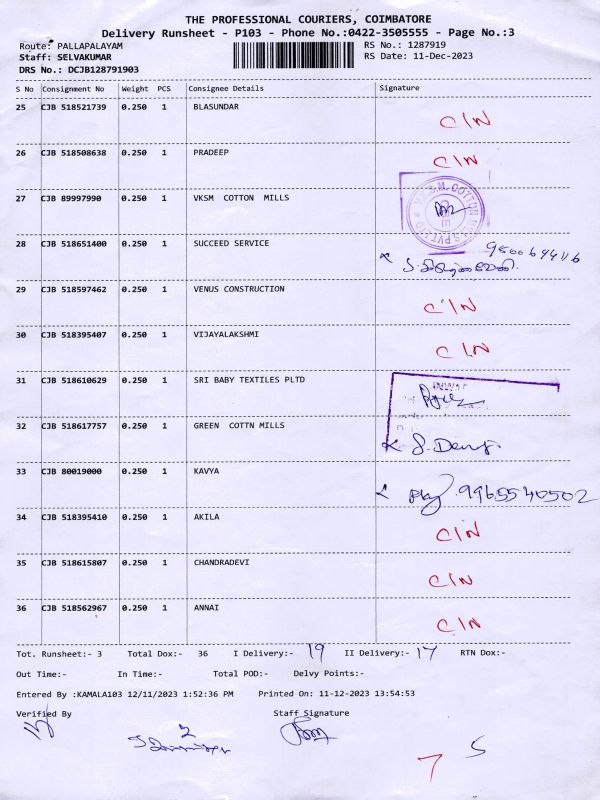 THE PROFESSIONAL COURIERS, COIMBATORE
Delivery Runsheet - P103 - Phone No.:0422-3505555 - Page No.:3
Route: PALLAPALAYAM RS No.: 1287919
Staff: SELVAKUMAR RS Date: 11-Dec-2023
DRS No.: DCJB128791903
S No Consignment No Weight PCS Consignee Details Signature
25 CJB 518521739 0.250 1 BLASUNDAR C/N
26 CJB 518508638 0.250 1 PRADEEP C/N
27 CJB 89997990 0.250 1 VKSM COTTON MILLS
28 CJB 518651400 0.250 1 SUCCEED SERVICE
29 CJB 518597462 0.250 1 VENUS CONSTRUCTION C/N
30 CJB 518395407 0.250 1 VIJAYALAKSHMI C/N
31 CJB 518610629 0.250 1 SRI BABY TEXTILES PLTD
32 CJB 518617757 0.250 1 GREEN COTTN MILLS
33 CJB 80019000 0.250 1 KAVYA 9965540502
34 CJB 518395410 0.250 1 AKILA C/N
35 CJB 518615807 0.250 1 CHANDRADEVI C/N
36 CJB 518562967 0.250 1 ANNAI C/N
Tot. Runsheet:- 3 Total Dox:- 36 I Delivery:- 19 II Delivery:- 17 RTN Dox:-
Out Time:- In Time:- Total POD:- Delvy Points:-
Entered By :KAMALA103 12/11/2023 1:52:36 PM Printed On: 11-12-2023 13:54:53
Verified By Staff Signature
7 5